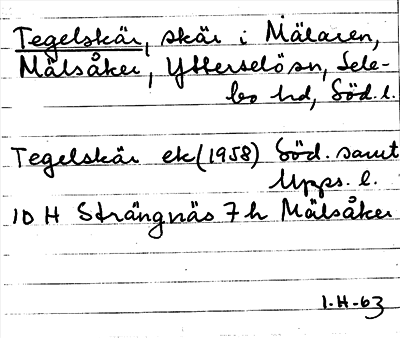 Tegelskär, skär i Mälaren,
Mälsåker, Ytterselö sn, Sele-
bo hd, Söd. l.
Tegelskär ek (1958) Söd. samt
Upps. l.
10 H Strängnäs 7 h Mälsåker
1.H-63